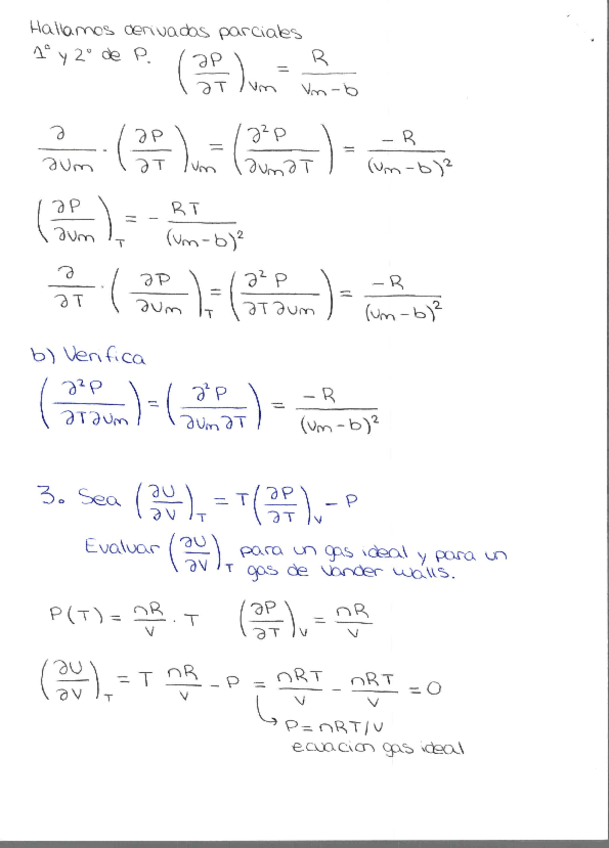 Hallamos derivadas parciales
1° y 2° de P. (∂P/∂T)Vm = R/(Vm-b)
∂/∂Vm · (∂P/∂T)Vm = (∂²P/∂Vm∂T) = -R/(Vm-b)²
(∂P/∂Vm)T = - RT/(Vm-b)²
∂/∂T · (∂P/∂Vm)T = (∂²P/∂T∂Vm) = -R/(Vm-b)²
b) Verifica
(∂²P/∂T∂Vm) = (∂²P/∂Vm∂T) = -R/(Vm-b)²
3. Sea (∂U/∂V)T = T(∂P/∂T)V - P
Evaluar (∂U/∂V)T para un gas ideal y para un
gas de vander walls.
P(T) = nR/V · T (∂P/∂T)V = nR/V
(∂U/∂V)T = T nR/V - P = nRT/V - nRT/V = 0
↳ P=nRT/V
ecuacion gas ideal